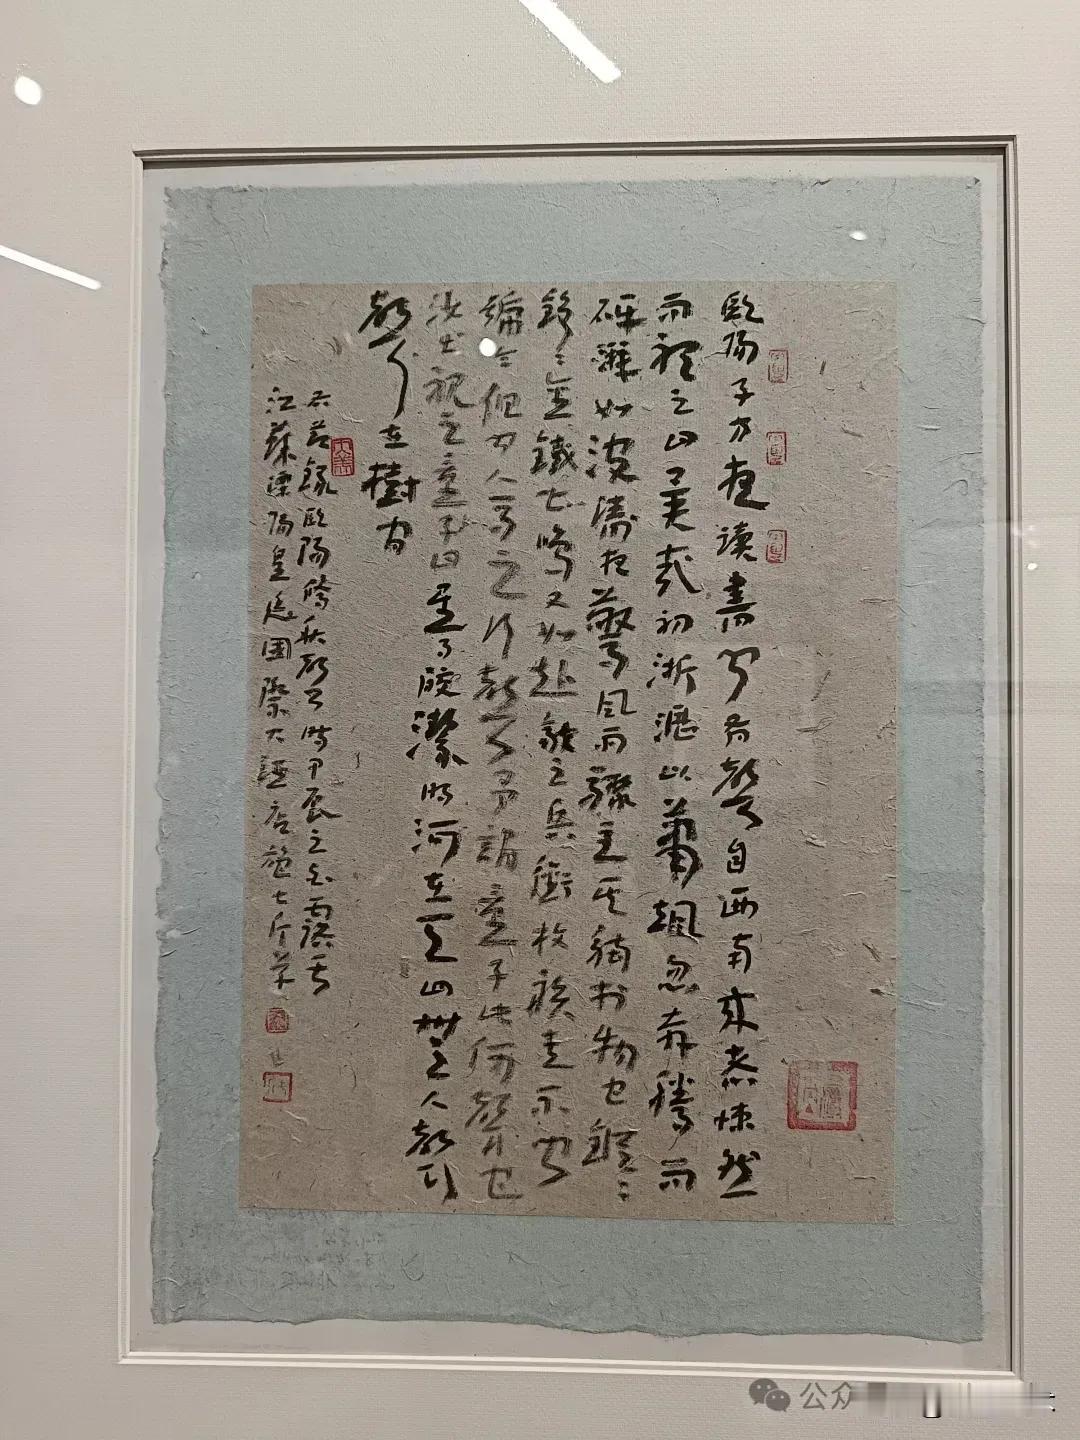 歐陽子方夜讀書聞有聲自西南來者悚然
而聽之曰異哉初淅瀝以蕭颯忽奔騰而
砰湃如波濤夜驚風雨驟至其觸於物也鏦〻
錚〻金鐵皆鳴又如赴敵之兵銜枚疾走不聞
號令但聞人馬之行聲予謂童子此何聲也
汝出視之童子曰星月皎潔明河在天四無人聲
聲在樹間
右節錄歐陽脩秋聲 時甲辰之 露
江蘇溧陽皇廷國際大酒店 七斤
公众